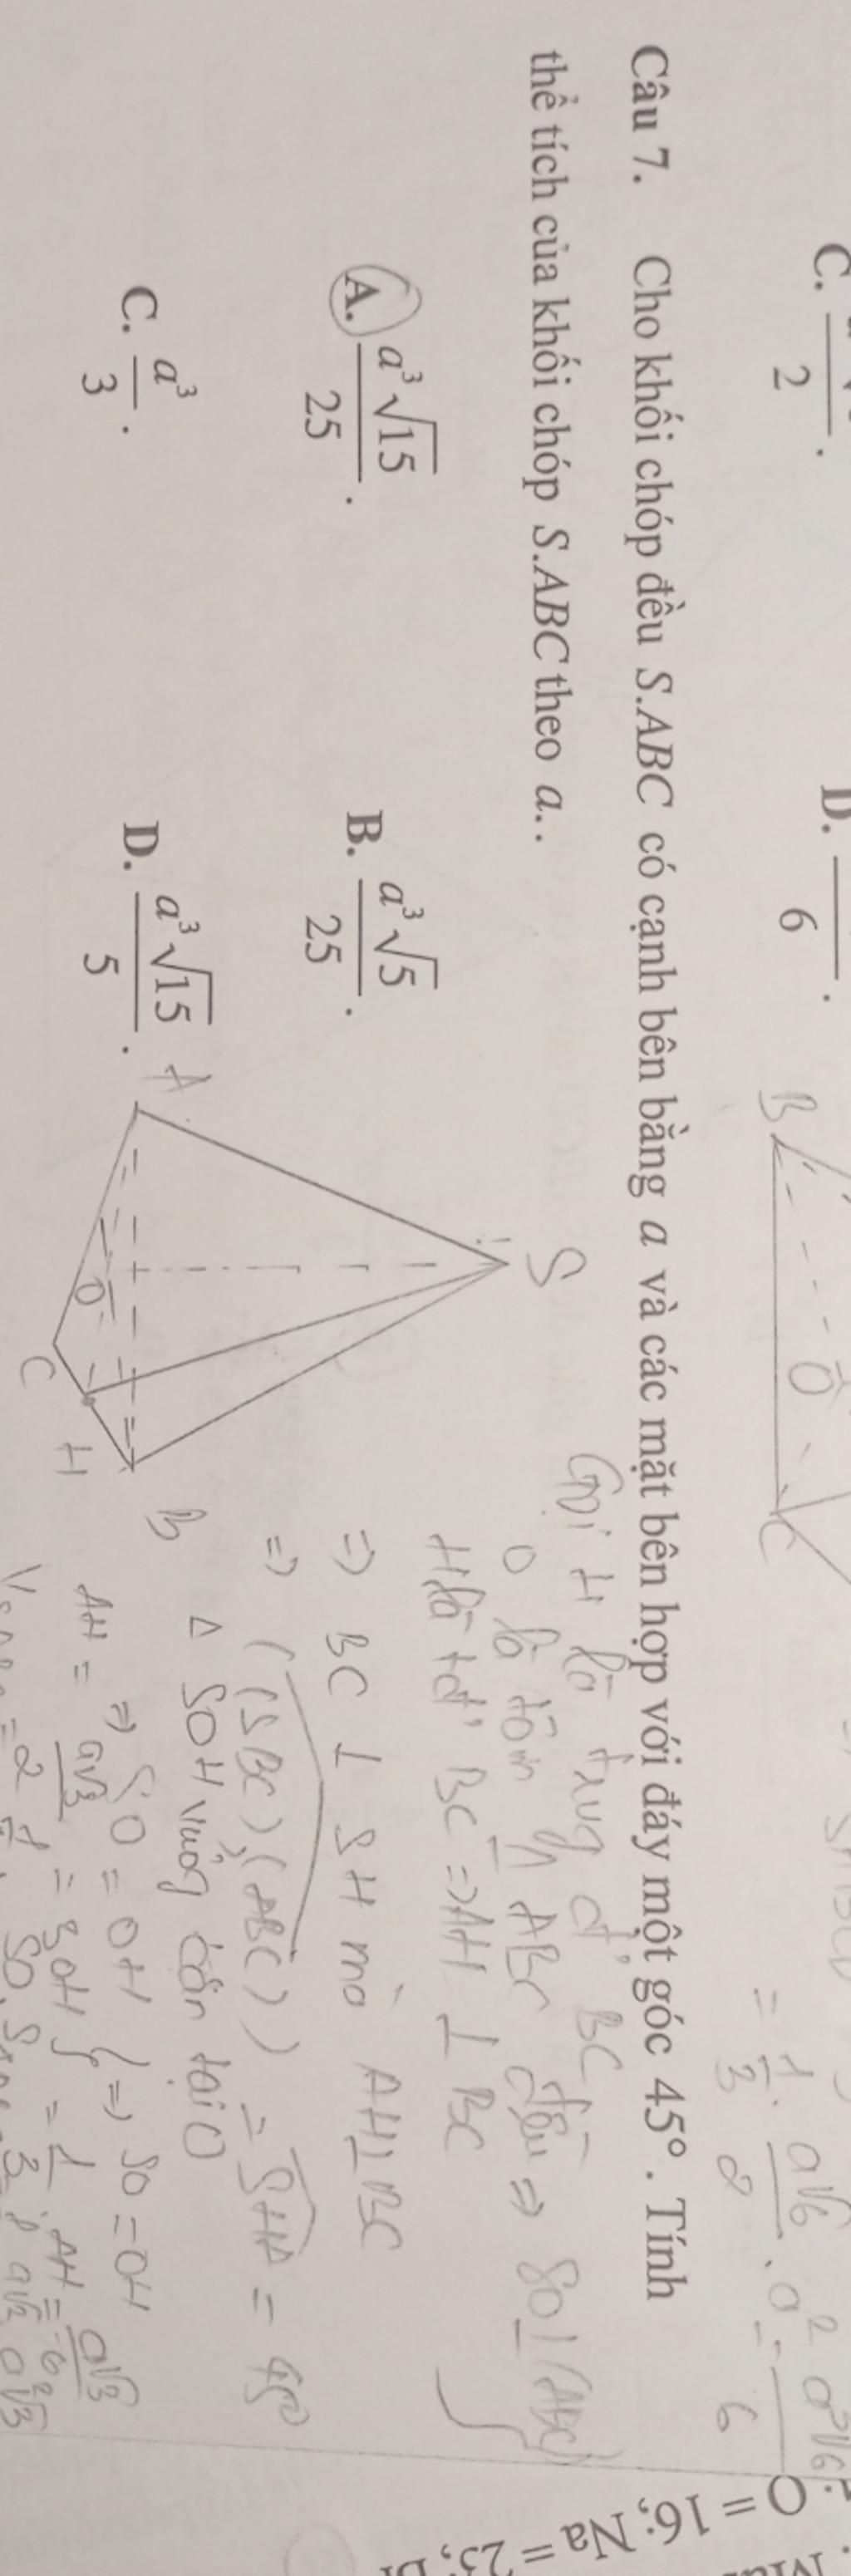 C. 2 .
D. 6 .
B
O
C
= 1/3 . a√6/2 . a² = a³√6/6
Câu 7. Cho khối chóp đều S.ABC có cạnh bên bằng a và các mặt bên hợp với đáy một góc 45°. Tính
thể tích của khối chóp S.ABC theo a..
A. a³√15/25 .
B. a³√5/25 .
C. a³/3 .
D. a³√15/5 .
S
A
O
C
H
B
Gọi H là trung đ' BC
O là tâm ABC đều => SO ⊥ (ABC)
H là tđ' BC => AH ⊥ BC
=> BC ⊥ SH mà AH ⊥ BC
=> ((SBC),(ABC)) = SHA = 45°
Δ SOH vuông cân tại O
=> SO = OH
=> SO = OH
AH = a√3 = 3OH
= 1/3 AH = a√3/6
O = 16; Na = 23;